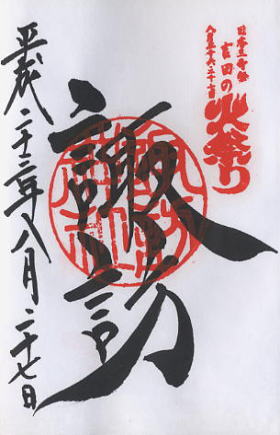 日本三奇祭
吉田の
火祭り
八月二十六・二十七日
諏訪
平成二十三年八月二十七日